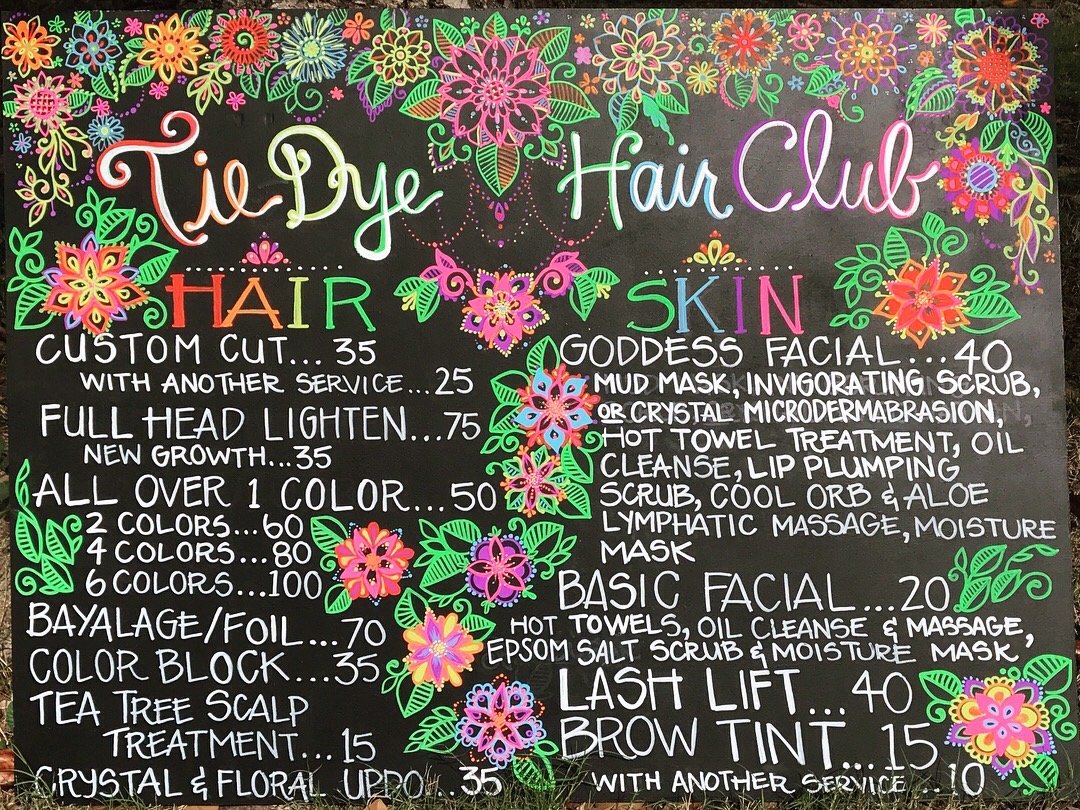 Tie Dye Hair Club
HAIR
CUSTOM CUT... 35
WITH ANOTHER SERVICE...25
FULL HEAD LIGHTEN...75
NEW GROWTH...35
ALL OVER 1 COLOR... 50
2 COLORS...60
4 COLORS...80
6 COLORS...100
BAYALAGE/FOIL...70
COLOR BLOCK...35
TEA TREE SCALP
TREATMENT...15
CRYSTAL & FLORAL UPDO...35
SKIN
GODDESS FACIAL...40
MUD MASK, INVIGORATING SCRUB,
OR CRYSTAL MICRODERMABRASION,
HOT TOWEL TREATMENT, OIL
CLEANSE, LIP PLUMPING
SCRUB, COOL ORB & ALOE
LYMPHATIC MASSAGE, MOISTURE
MASK
BASIC FACIAL...20
HOT TOWELS, OIL CLEANSE & MASSAGE,
EPSOM SALT SCRUB & MOISTURE MASK,
LASH LIFT...40
BROW TINT...15
WITH ANOTHER SERVICE...10